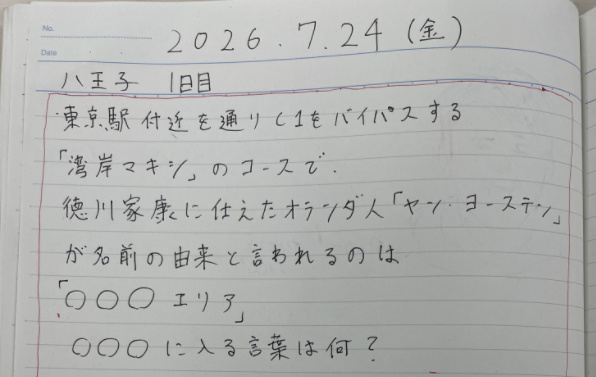 No.
Date
2026.7.24(金)
八王子 1日目
東京駅付近を通りC1をバイパスする
「湾岸マキシ」のコースで.
徳川家康に仕えたオランダ人「ヤン・ヨーステン」
が名前の由来と言われるのは
「〇〇〇エリア」
〇〇〇に入る言葉は何?